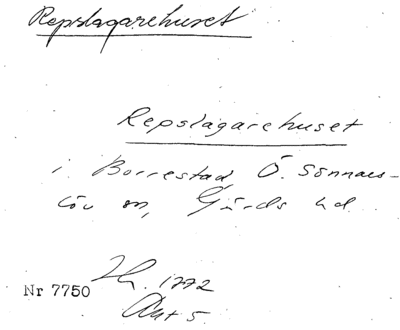 Repslagarehuset
Repslagarehuset
i Borrestad Ö. Sönnaes-
löv sn, Gärds hd.
1772
Nr 7750
Akt 5.